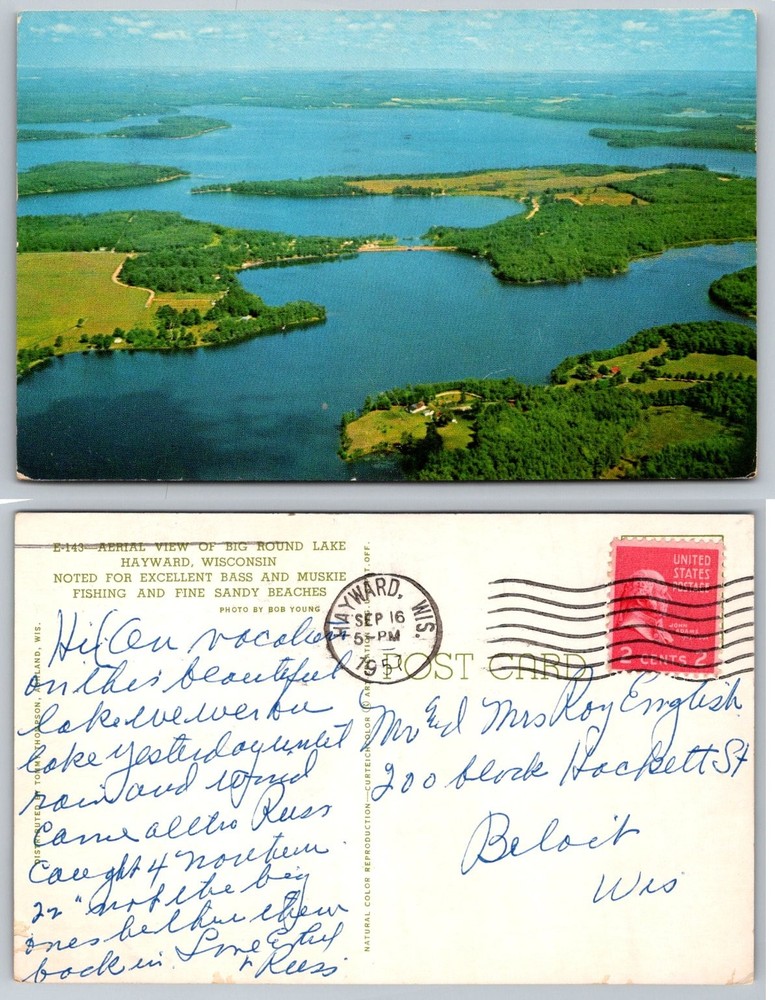 E-143—AERIAL VIEW OF BIG ROUND LAKE
HAYWARD, WISCONSIN
NOTED FOR EXCELLENT BASS AND MUSKIE
FISHING AND FINE SANDY BEACHES
PHOTO BY BOB YOUNG
Hi! On vacation
on this beautiful
lake we were on
lake yesterday until
rain and wind
came altho Russ
caught 4 northern
22" not the big
ones but thru them
back in. Love Ethel
+ Russ
DISTRIBUTED BY TOMMY THOMPSON, ASHLAND, WIS.
NATURAL COLOR REPRODUCTION—CURTEICHCOLOR
HAYWARD, WIS.
SEP 16
5 PM
195
POST CARD
UNITED
STATES
POSTAGE
JOHN
ADAMS
2 CENTS 2
Mr and Mrs Roy English
200 block Hackett St
Beloit
Wis